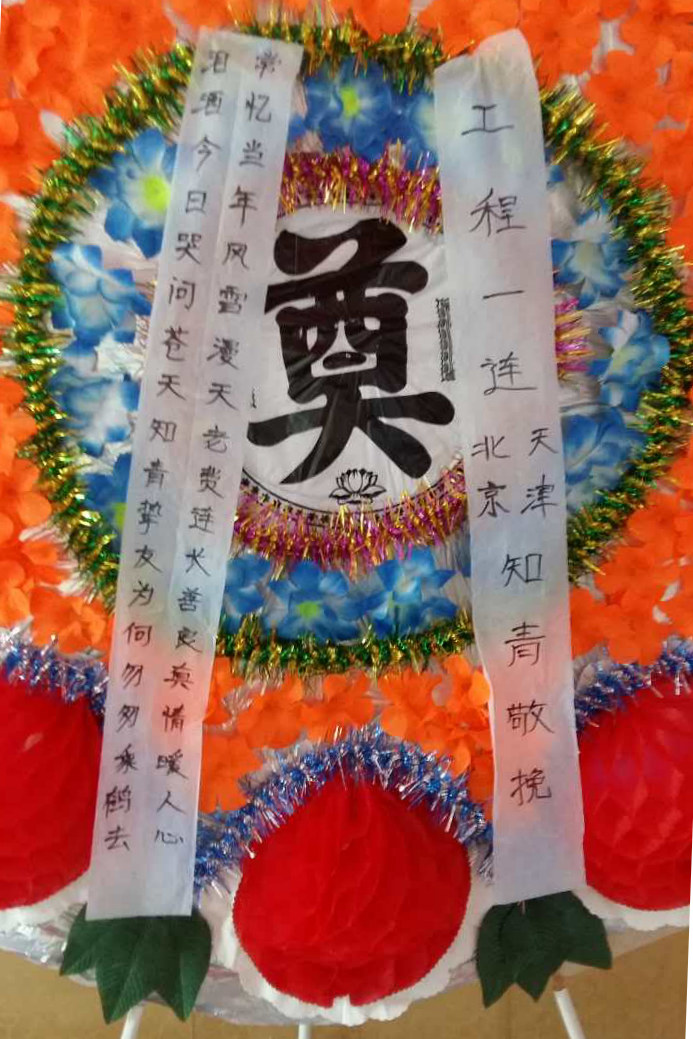 工程一连
天津
北京
知青敬挽
奠
常忆当年风雪漫天老费连长善良真情暖人心
泪洒今日哭问苍天知青挚友为何匆匆乘鹤去